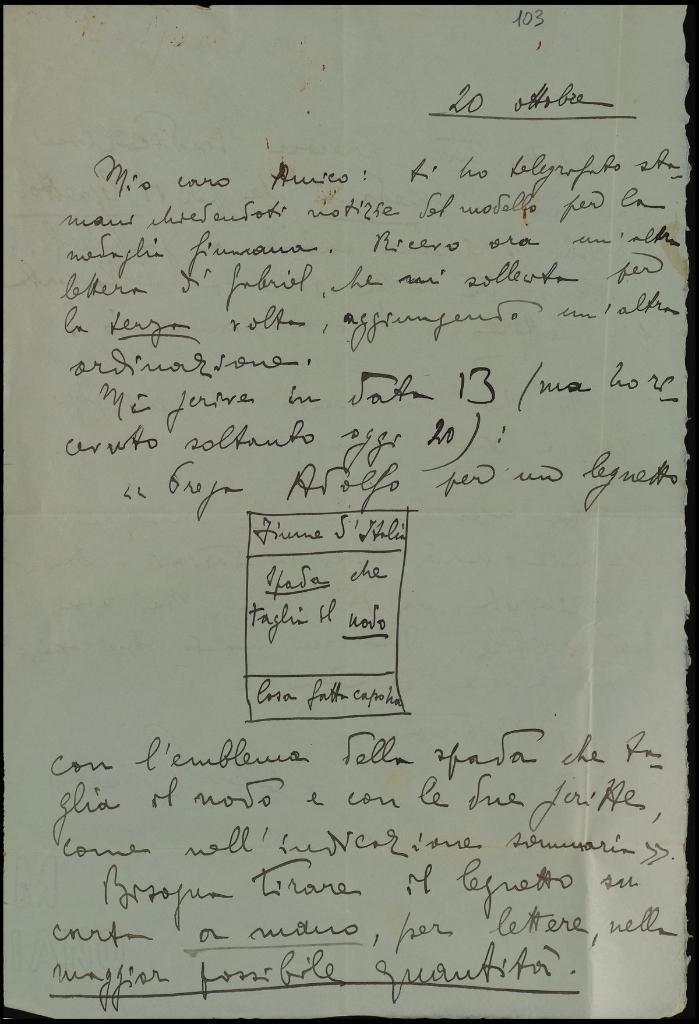 103
20 ottobre
Mio caro Amico: ti ho telegrafato sta-
mani chiedendoti notizie del modello per la
medaglia fiumana. Ricevo ora un'altra
lettera di Gabriel, che mi sollecita per
la terza volta, aggiungendo un'altra
ordinazione.
Mi scrive in data 13 (ma ho ri-
cevuto soltanto oggi 20):
"Prega Adolfo per un legnetto
Fiume d'Italia
Spada che
taglia il nodo
Cosa fatta capo ha
con l'emblema della spada che ta-
glia il nodo e con le due scritte,
come nell'indicazione sommaria».
Bisogna tirare il legnetto su
carta a mano, per lettere, nella
maggior possibile quantità.